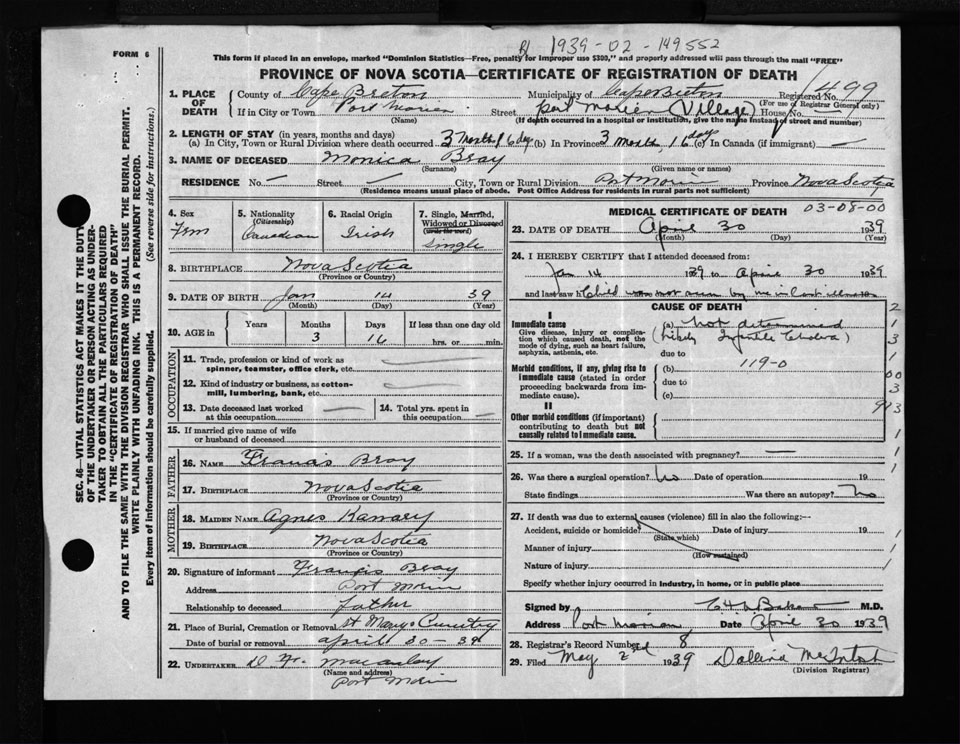 FORM 6
1939-02-149552
This form if placed in an envelope, marked "Dominion Statistics—Free, penalty for improper use $300," and properly addressed will pass through the mail "FREE"
PROVINCE OF NOVA SCOTIA—CERTIFICATE OF REGISTRATION OF DEATH
1. PLACE OF DEATH
County of Cape Breton Municipality of Cape Breton Registered No. 1499
(For use of Registrar General only)
If in City or Town Port Morien Street Port Morien (Village) House No.
(Name) (If death occurred in a hospital or institution, give the name instead of street and number)
2. LENGTH OF STAY (in years, months and days)
(a) In City, Town or Rural Division where death occurred 3 Months 16 days (b) In Province 3 Months 16 days (c) In Canada (if immigrant) —
3. NAME OF DECEASED Monica Bray
(Surname) (Given name or names)
RESIDENCE No. — Street — City, Town or Rural Division Port Morien Province Nova Scotia
(Residence means usual place of abode. Post Office Address for residents in rural parts not sufficient)
4. Sex
Fem
5. Nationality
(Citizenship)
Canadian
6. Racial Origin
Irish
7. Single, Married,
Widowed or Divorced
(write the word)
Single
8. BIRTHPLACE Nova Scotia
(Province or Country)
9. DATE OF BIRTH Jan 14 39
(Month) (Day) (Year)
10. AGE in Years Months Days If less than one day old
3 16 hrs. or min.
OCCUPATION
11. Trade, profession or kind of work as
spinner, teamster, office clerk, etc. —
12. Kind of industry or business, as cotton-
mill, lumbering, bank, etc. —
13. Date deceased last worked
at this occupation —
14. Total yrs. spent in
this occupation —
15. If married give name of wife
or husband of deceased
FATHER
16. NAME Francis Bray
17. BIRTHPLACE Nova Scotia
(Province or Country)
MOTHER
18. MAIDEN NAME Agnes Kanary
19. BIRTHPLACE Nova Scotia
(Province or Country)
20. Signature of informant Francis Bray
Address Port Morien
Relationship to deceased father
21. Place of Burial, Cremation or Removal St Marys Cemetry
Date of burial or removal April 30 - 39
22. UNDERTAKER
(Name and address)
Port Morien
MEDICAL CERTIFICATE OF DEATH 03-08-00
23. DATE OF DEATH April 30 1939
(Month) (Day) (Year)
24. I HEREBY CERTIFY that I attended deceased from:
Jan 14 1939 to April 30 1939
and last saw Child was not seen by me in last illness
CAUSE OF DEATH
I
Immediate cause
Give disease, injury or complica-
tion which caused death, not the
mode of dying, such as heart failure,
asphyxia, asthenia, etc.
(a) Not determined
(Likely Infantile Cholera)
due to
Morbid conditions, if any, giving rise to
immediate cause (stated in order
proceeding backwards from im-
mediate cause).
(b) 119-0
due to
(c)
II
Other morbid conditions (if important)
contributing to death but not
causally related to immediate cause.
2
1
3
1
00
3
913
1
1
1
1
1
25. If a woman, was the death associated with pregnancy? —
26. Was there a surgical operation? No Date of operation 19
State findings Was there an autopsy? No
27. If death was due to external causes (violence) fill in also the following:—
Accident, suicide or homicide? Date of injury 19
(State which)
Manner of injury
(How sustained)
Nature of injury
Specify whether injury occurred in industry, in home, or in public place
Signed by M.D.
Address Port Morien Date April 30 1939
28. Registrar's Record Number 8
29. Filed May 2nd 1939 McIntosh
(Division Registrar)
SEC. 46—VITAL STATISTICS ACT MAKES IT THE DUTY
OF THE UNDERTAKER OR PERSON ACTING AS UNDER-
TAKER TO OBTAIN ALL THE PARTICULARS REQUIRED
IN THE "CERTIFICATE OF REGISTRATION OF DEATH"
AND TO FILE THE SAME WITH THE DIVISION REGISTRAR WHO SHALL ISSUE THE BURIAL PERMIT.
WRITE PLAINLY WITH UNFADING INK. THIS IS A PERMANENT RECORD.
Every item of information should be carefully supplied. (See reverse side for instructions.)